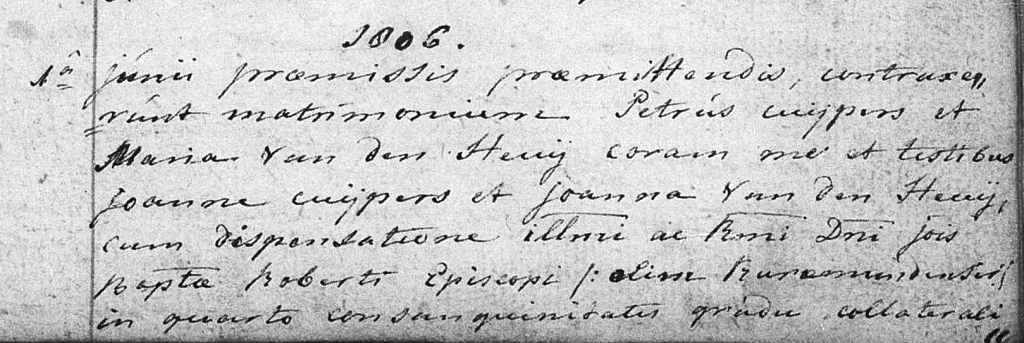 1806.
1â junii præmissis præmittendis, contraxe„
=runt matrimonium Petrus cuijpers et
Maria Van den Heuij coram me et testibus
Joanne cuijpers et Joanna Van den Heuij,
cum dispensatione illmi ac Rmi Dni jois
Baptæ Roberti Episcopi /: olim Ruræmundensis :/
in quarto consanguinitatis gradu collaterali